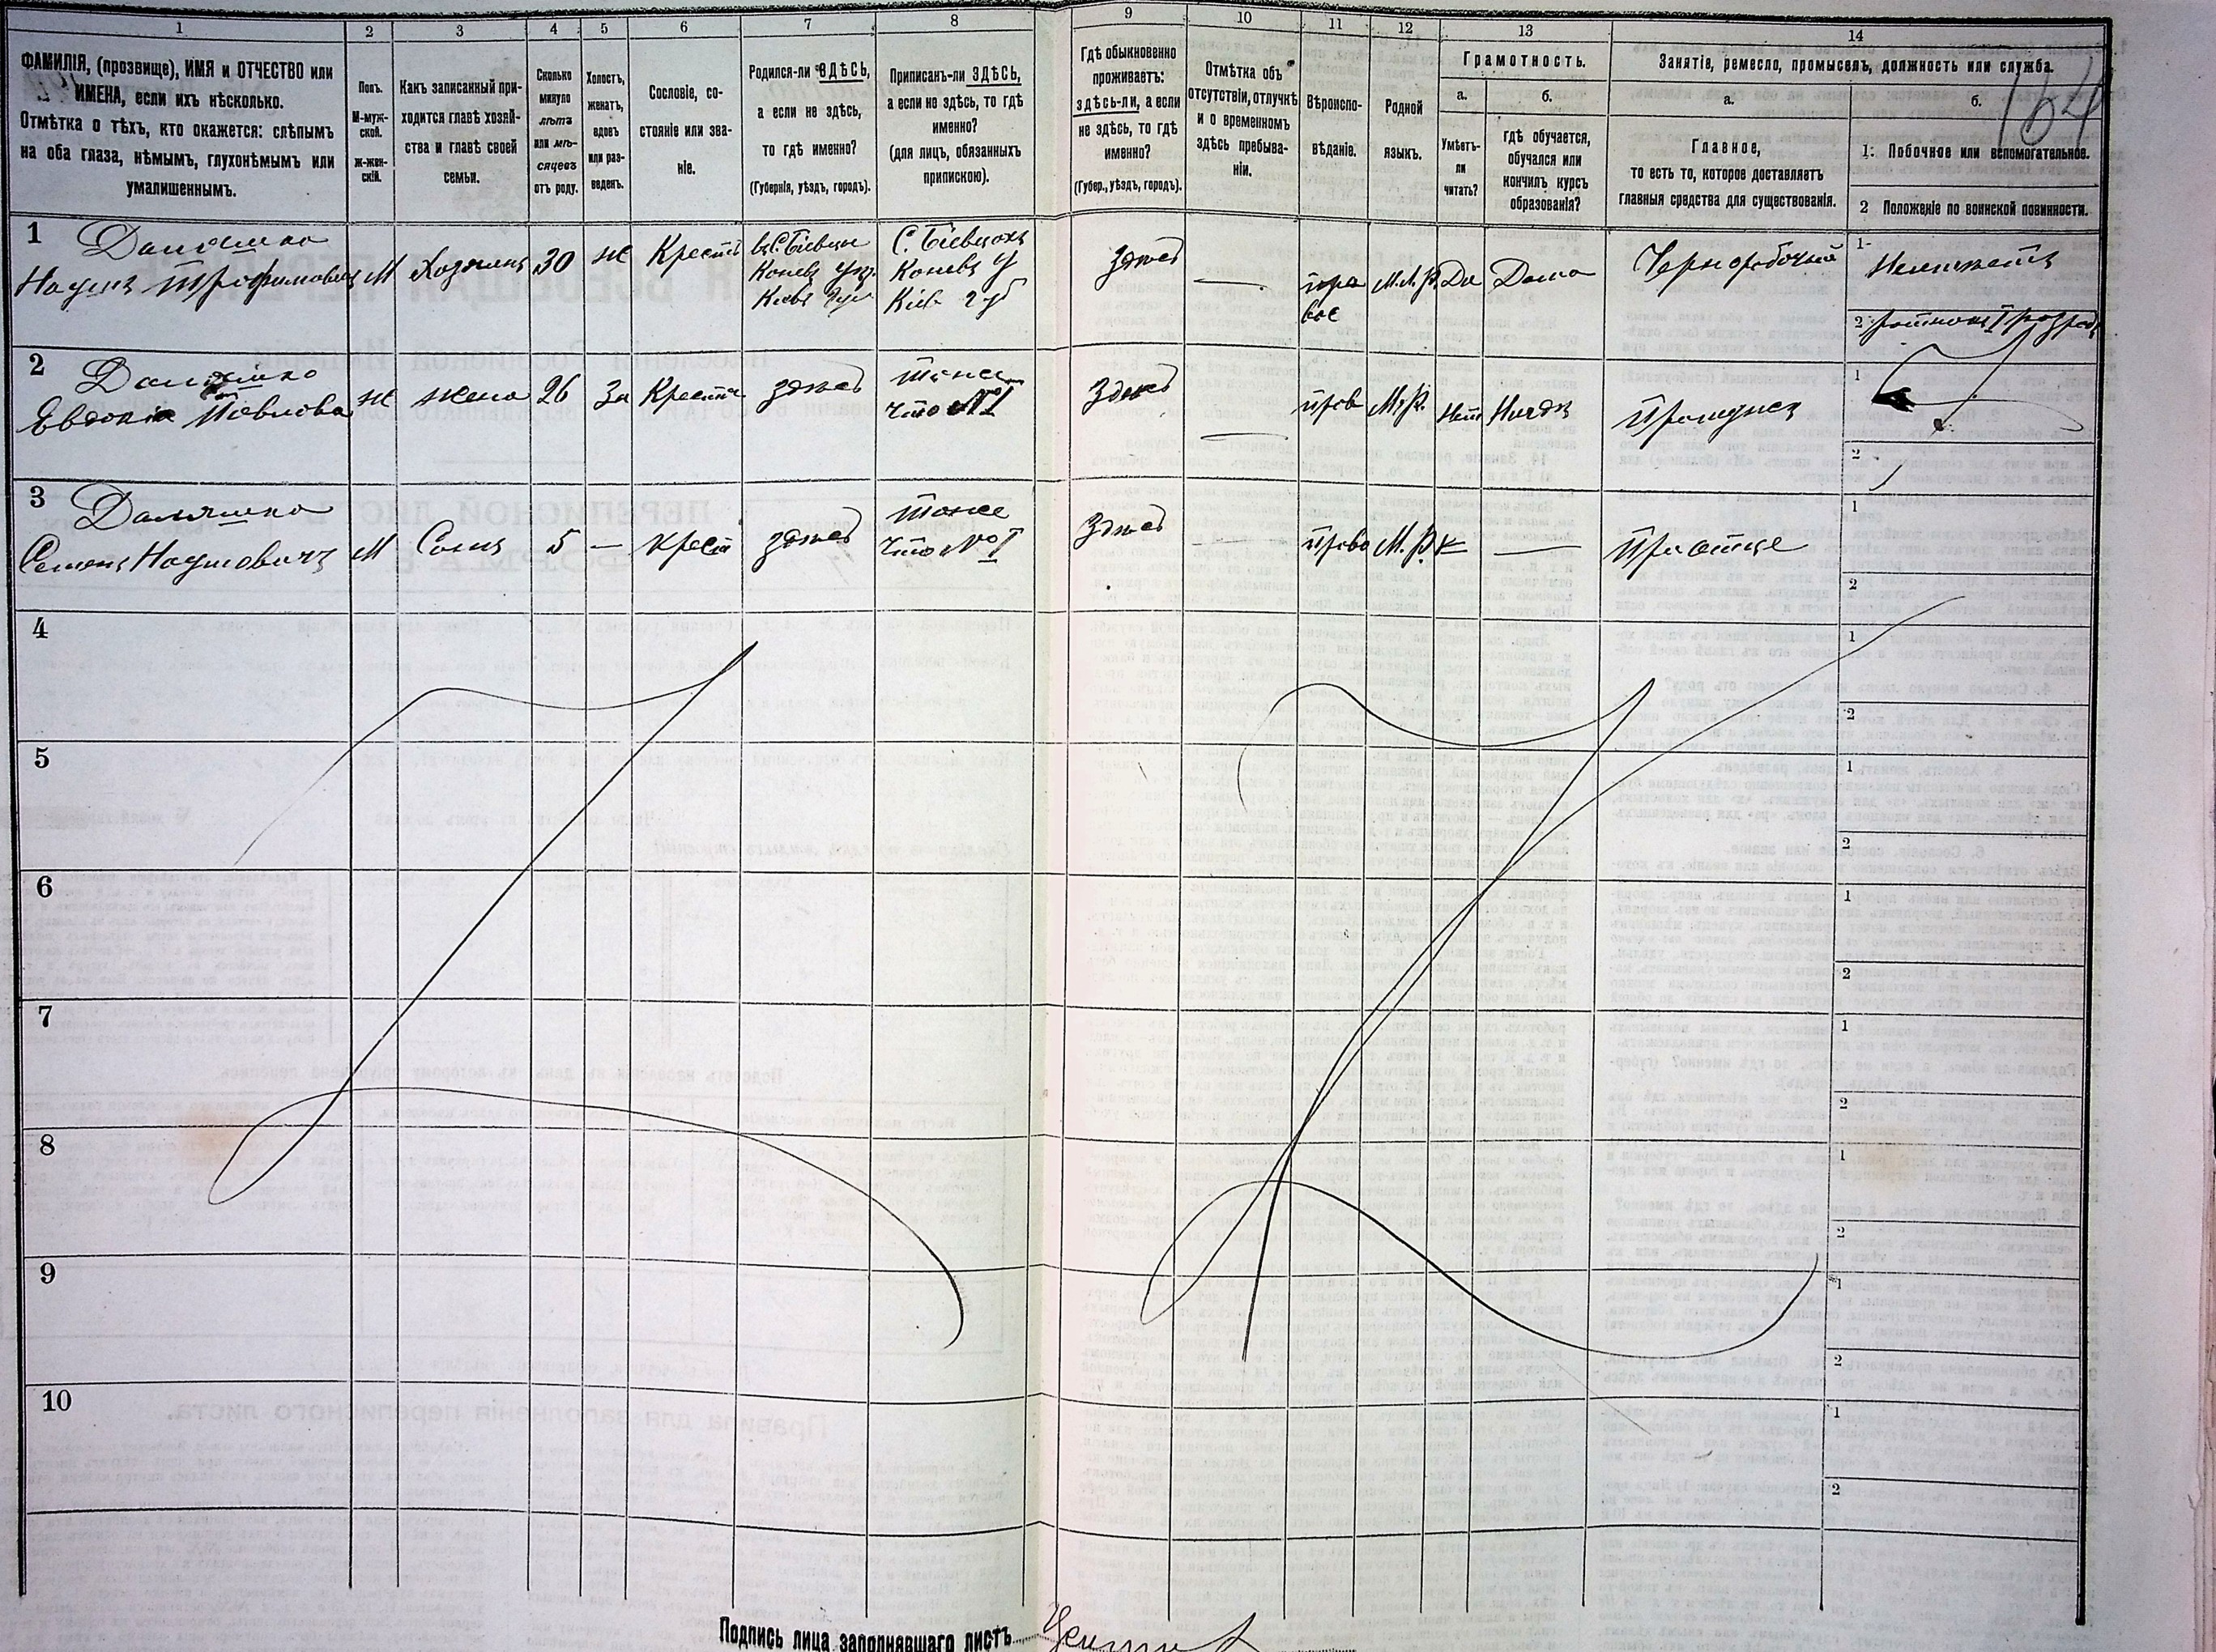 1 2 3 4 5 6 7 8 9 10 11 12 13 14
ФАМИЛІЯ, (прозвище), ИМЯ и ОТЧЕСТВО или
ИМЕНА, если ихъ нѣсколько.
Отмѣтка о тѣхъ, кто окажется: слѣпымъ
на оба глаза, нѣмымъ, глухонѣмымъ или
умалишеннымъ.
Полъ.
М-муж-
ской.
ж-жен-
скій.
Какъ записанный при-
ходится главѣ хозяй-
ства и главѣ своей
семьи.
Сколько
минуло
лѣтъ
или мѣ-
сяцевъ
отъ роду.
Холостъ,
женатъ,
вдовъ
или раз-
веденъ.
Сословіе, со-
стояніе или зва-
ніе.
Родился-ли ЗДѢСЬ,
а если не здѣсь,
то гдѣ именно?
(Губернія, уѣздъ, городъ).
Приписанъ-ли ЗДѢСЬ,
а если не здѣсь, то гдѣ
именно?
(для лицъ, обязанныхъ
припискою).
Гдѣ обыкновенно
проживаетъ:
здѣсь-ли, а если
не здѣсь, то гдѣ
именно?
(Губер., уѣздъ, городъ).
Отмѣтка объ
отсутствіи, отлучкѣ
и о временномъ
здѣсь пребыва-
ніи.
Вѣроиспо-
вѣданіе.
Родной
языкъ.
Грамотность.
а.
Умѣетъ-
ли
читать?
б.
гдѣ обучается,
обучался или
кончилъ курсъ
образованія?
Занятіе, ремесло, промыселъ, должность или служба.
а.
Главное,
то есть то, которое доставляетъ
главныя средства для существованія.
б.
164
1. Побочное или вспомогательное.
2 Положеніе по воинской повинности.
1
Наумъ Трофимовичъ М Хозяинъ 30 ж Крестъ
С. Бѣевцахъ
Коневъ у
Кіев губ
здѣсь — пра
вос М.М.Р. Да Дома Чернорабочій
1
2
2
Евдокія Павлова ж жена 26 За Крестъ здѣсь
Тоже
что №1
Здѣсь — прав М.р. Нетъ Нигдѣ
1
2
3
Семенъ Наумовичъ М Сынъ 5 — крест здѣсь
Тоже
что №1
Здѣсь — право М.р. — При отце
1
2
4 1
2
5 1
2
6 1
2
7 1
2
8 1
2
9 1
2
10 1
2
Подпись лица заполнявшаго листъ